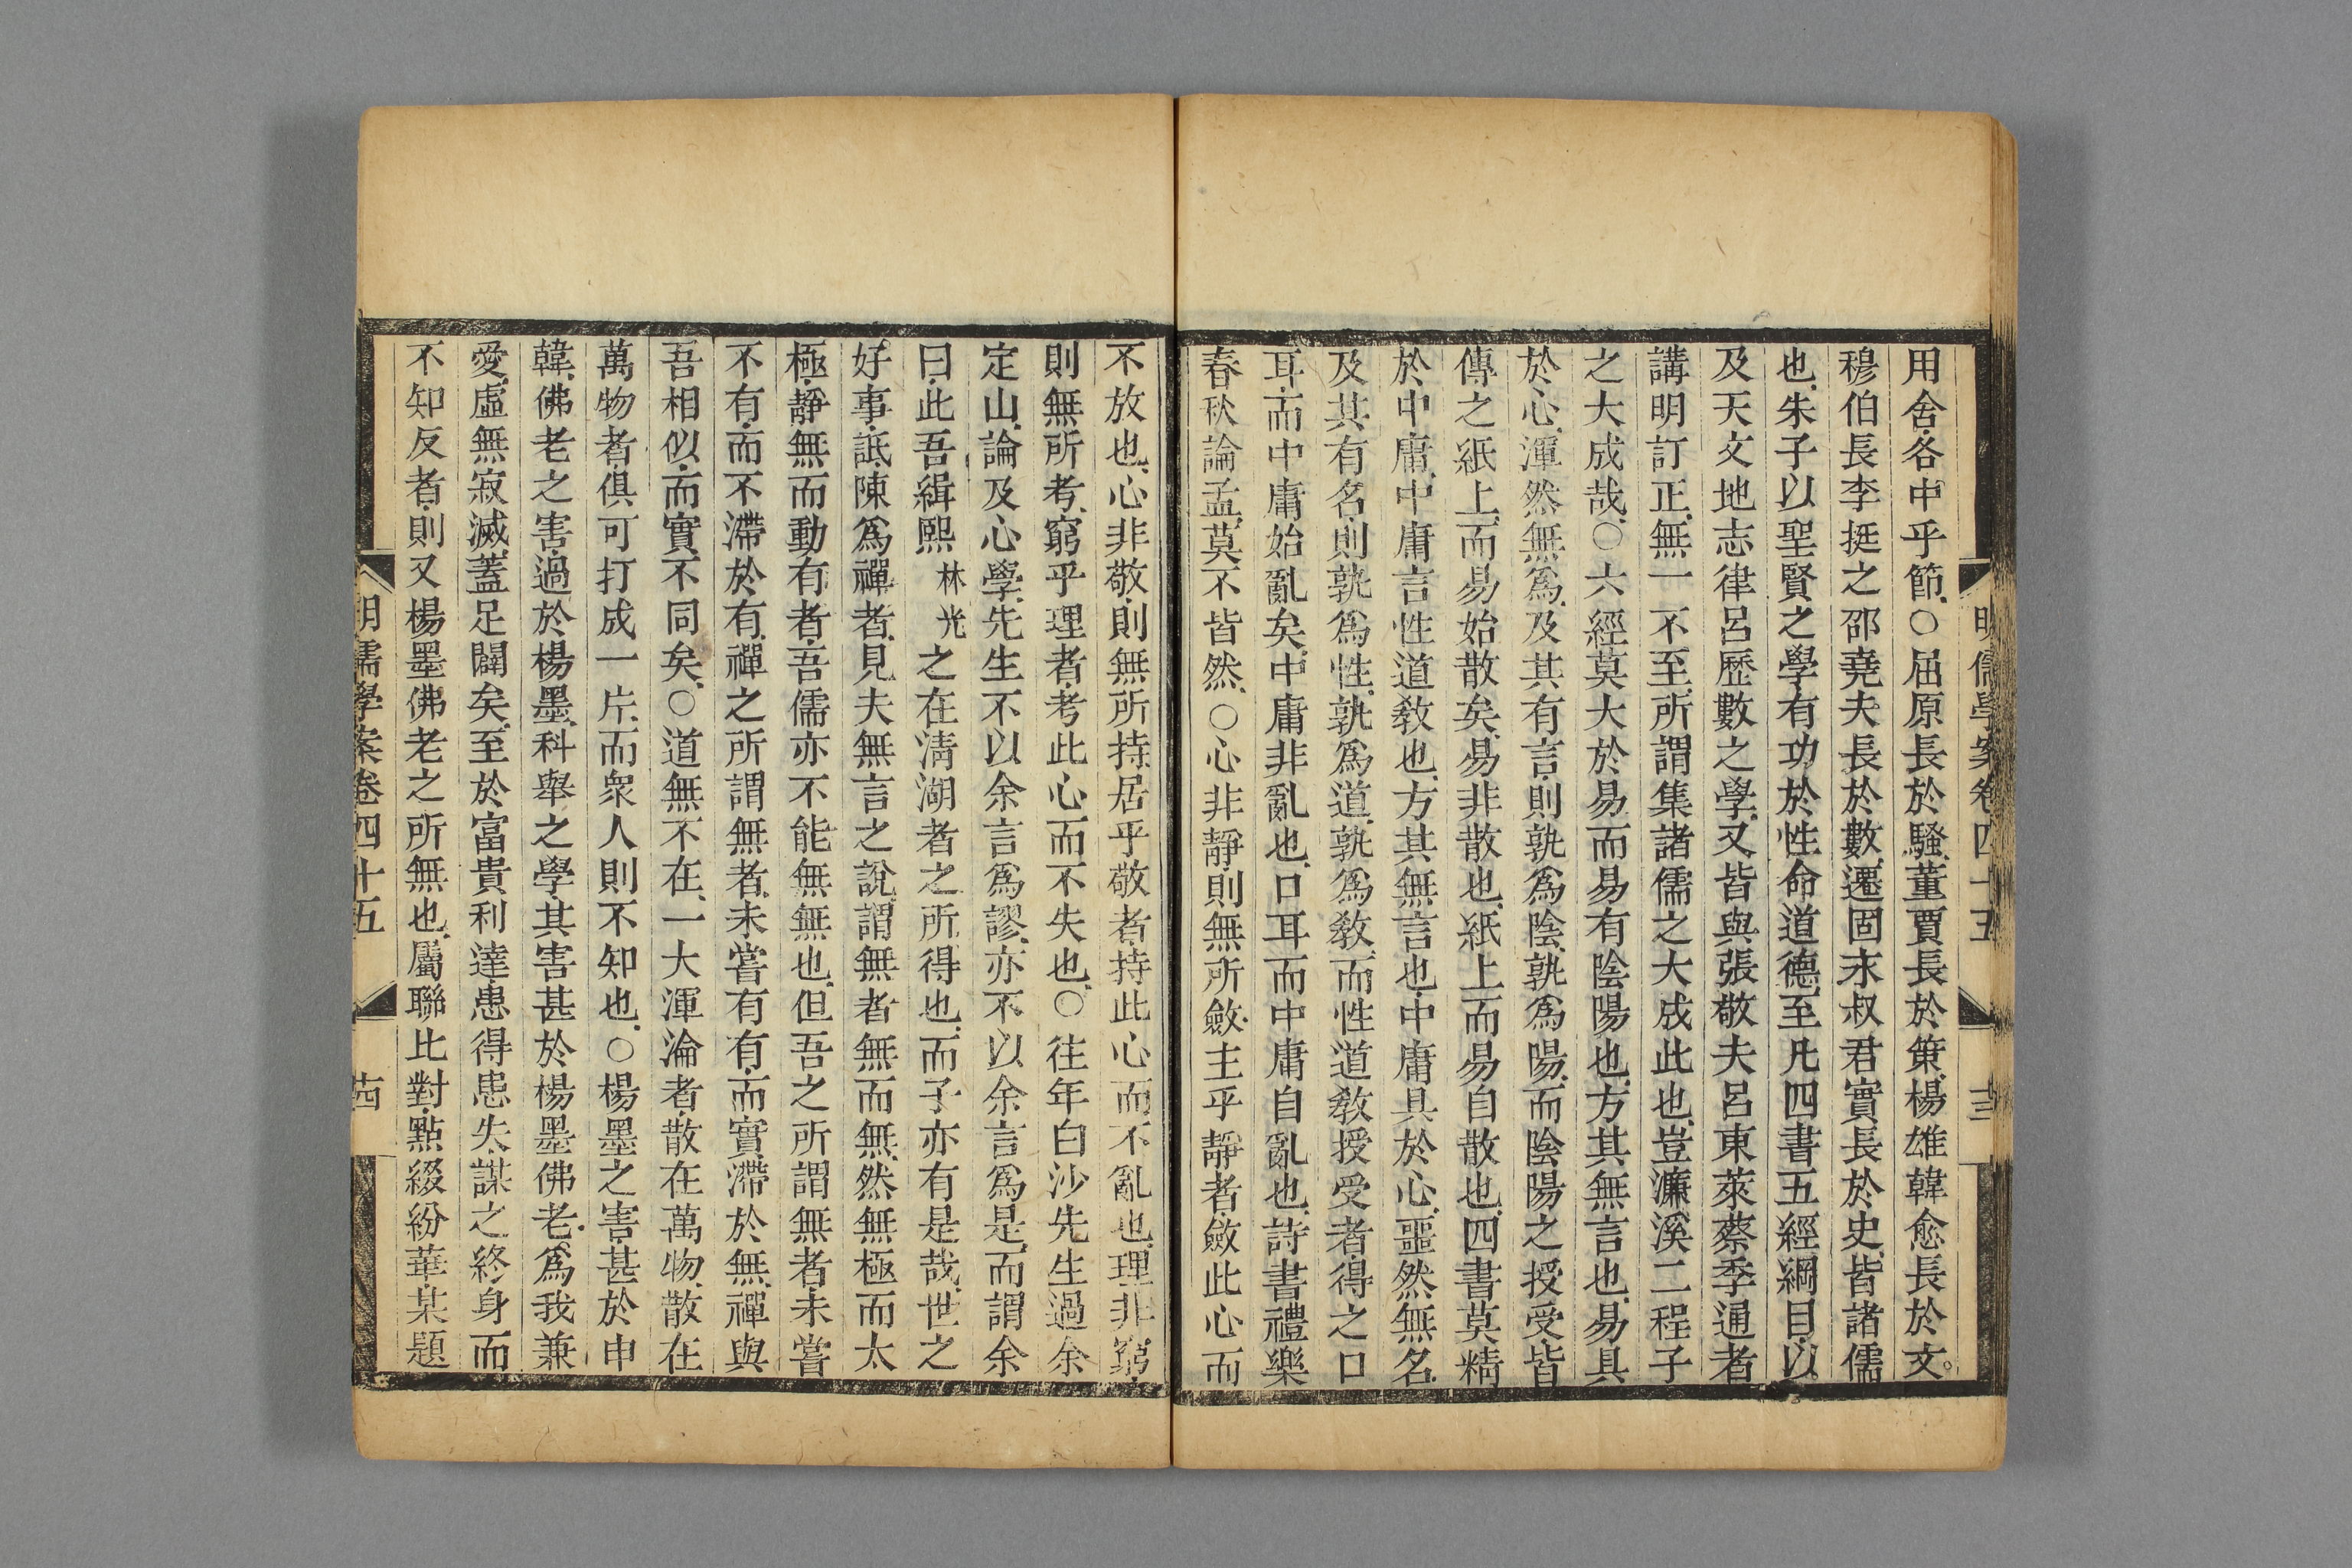 明儒學案卷四十五 十三
用舍各中乎節○屈原長於騷董賈長於策楊雄韓愈長於文
穆伯長李挺之邵堯夫長於數遷固永叔君實長於史皆諸儒
也朱子以聖賢之學有功於性命道德至凡四書五經綱目以
及天文地志律呂歷數之學又皆與張敬夫呂東萊蔡季通者
講明訂正無一不至所謂集諸儒之大成此也豈濂溪二程子
之大成哉○六經莫大於易而易有陰陽也方其無言也易具
於心渾然無爲及其有言則孰爲陰孰爲陽而陰陽之授受皆
傳之紙上而易始散矣易非散也紙上而易自散也四書莫精
於中庸中庸言性道敎也方其無言也中庸具於心噩然無名
及其有名則孰爲性孰爲道孰爲敎而性道敎授受者得之口
耳而中庸始亂矣中庸非亂也口耳而中庸自亂也詩書禮樂
春秋論孟莫不皆然○心非靜則無所斂主乎靜者斂此心而
不放也心非敬則無所持居乎敬者持此心而不亂也理非窮
則無所考窮乎理者考此心而不失也○往年白沙先生過余
定山論及心學先生不以余言爲謬亦不以余言爲是而謂余
曰此吾緝熙林光之在淸湖者之所得也而子亦有是哉世之
好事詆陳爲禪者見夫無言之說謂無者無而無然無極而太
極靜無而動有者吾儒亦不能無無也但吾之所謂無者未嘗
不有而不滯於有禪之所謂無者未嘗有有而實滯於無禪與
吾相似而實不同矣○道無不在一大渾淪者散在萬物散在
萬物者俱可打成一片而衆人則不知也○楊墨之害甚於申
韓佛老之害過於楊墨科舉之學其害甚於楊墨佛老爲我兼
愛虛無寂滅蓋足闢矣至於富貴利達患得患失謀之終身而
不知反者則又楊墨佛老之所無也屬聯比對點綴紛華某題
明儒學案卷四十五 十四